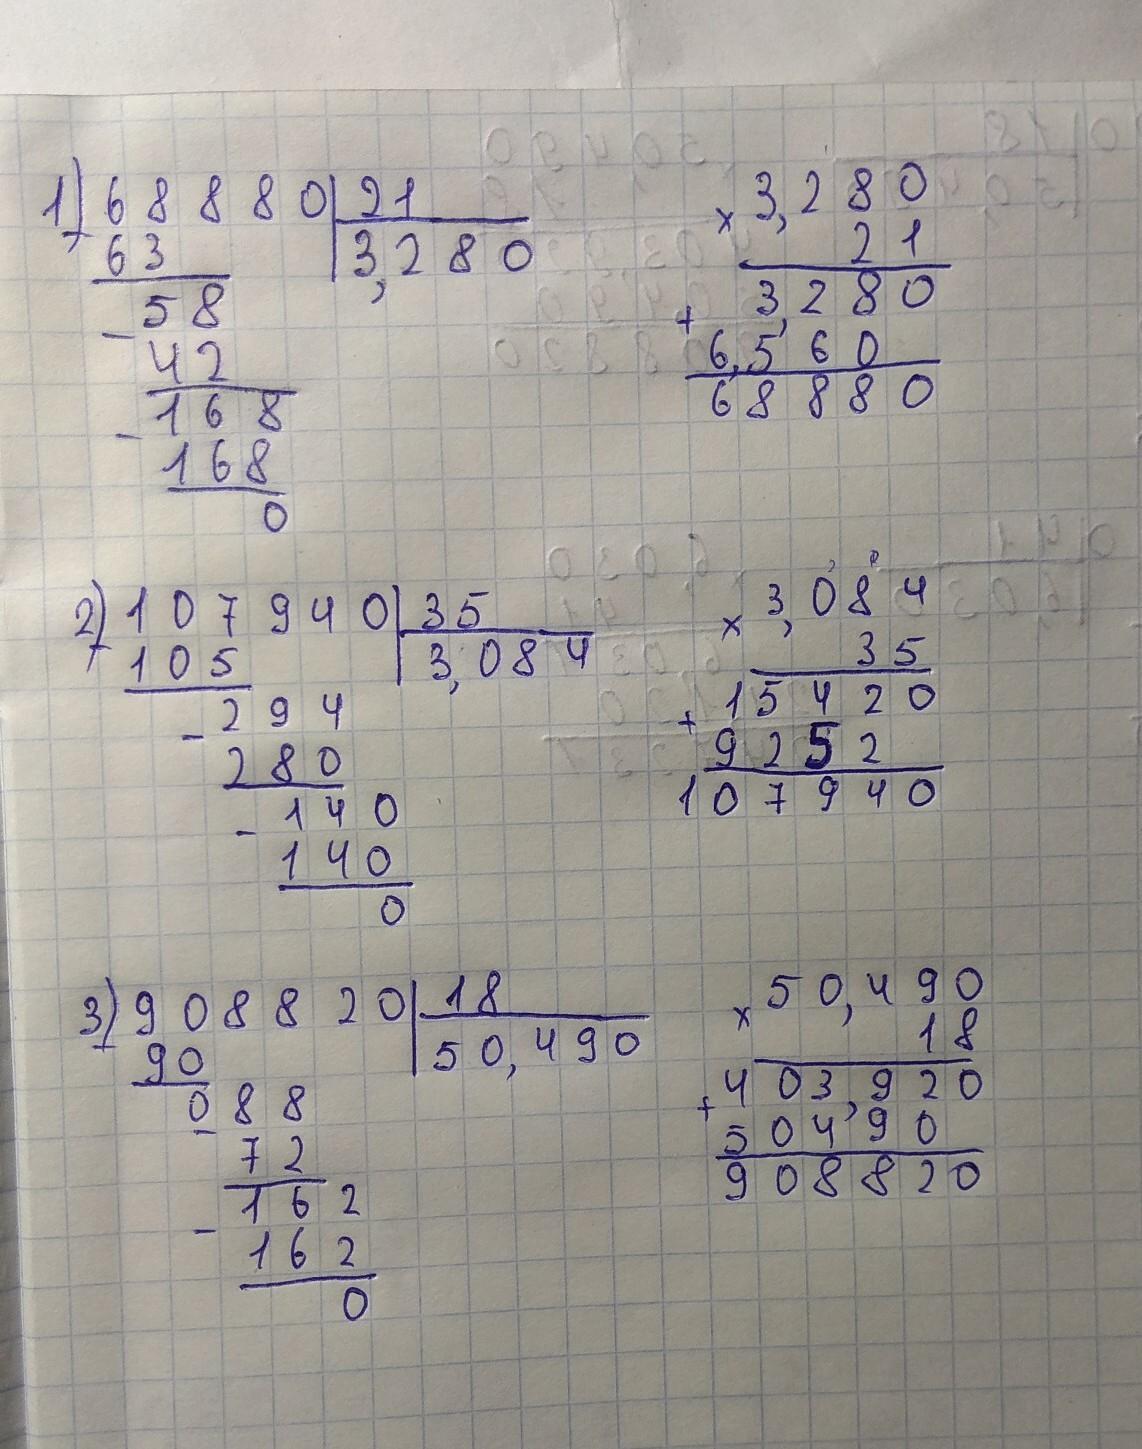 1) 68880 | 21
- 63 | 3,280
58
- 42
168
- 168
0
× 3,280
21
3,280
+ 6,560
68880
2) 107940 | 35
- 105 | 3,084
294
- 280
140
- 140
0
× 3,084
35
15420
+ 9252
107940
3) 908820 | 18
- 90 | 50,490
088
- 72
162
- 162
0
× 50,490
18
403,920
+ 50490
908820